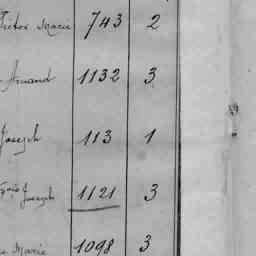 Victor Marie 743 2
Armand 1132 3
Joseph 113 1
Joseph 1121 3
Marie 1098 3